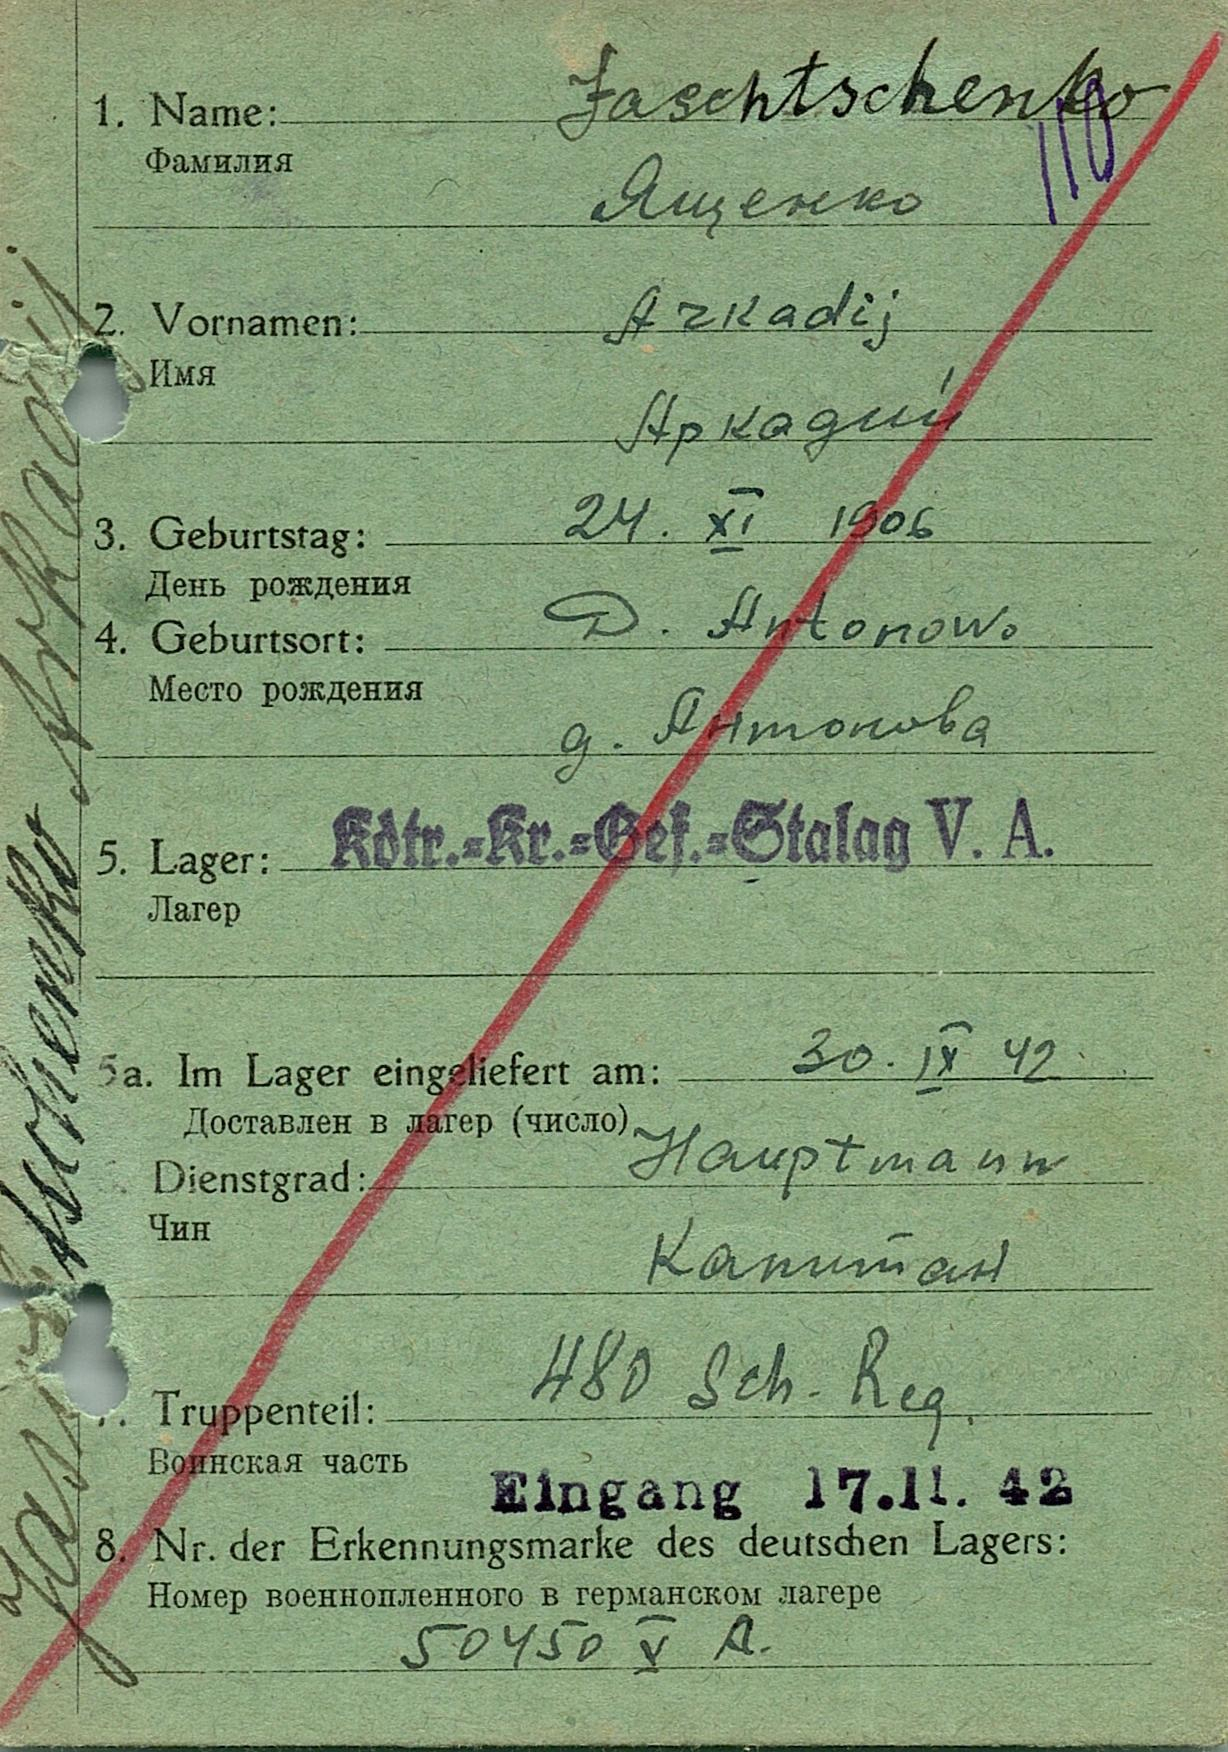 1. Name: Jaschtschenko
Фамилия
110
Ященко
2. Vornamen: Arkadij
Имя
Аркадий
3. Geburtstag: 24. XI 1906
День рождения
4. Geburtsort: D. Antonowo
Место рождения
д. Антонова
5. Lager: Kdtr.=Kr.=Gef.=Stalag V. A.
Лагер
5a. Im Lager eingeliefert am: 30. IX 42
Доставлен в лагер (число)
Dienstgrad: Hauptmann
Чин
Капитан
7. Truppenteil: 480 Sch. Reg.
Воинская часть
Eingang 17.11. 42
8. Nr. der Erkennungsmarke des deutschen Lagers:
Номер военнопленного в германском лагере
50450 V A.
Jaschtschenko Arkadij